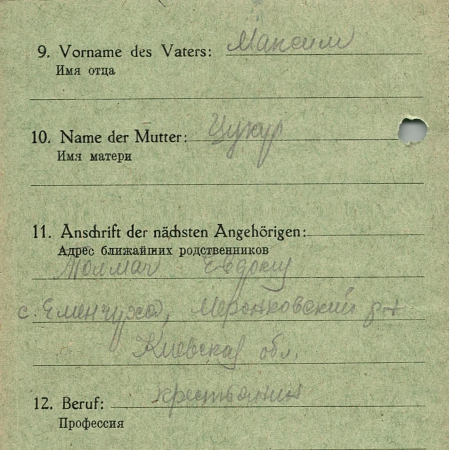 9. Vorname des Vaters: Максим
Имя отца
10. Name der Mutter: Цукур
Имя матери
11. Anschrift der nächsten Angehörigen:
Адрес ближайших родственников
Толмач
с. Еменчуха, р-н
Киевская обл.
12. Beruf: крестьянин
Профессия